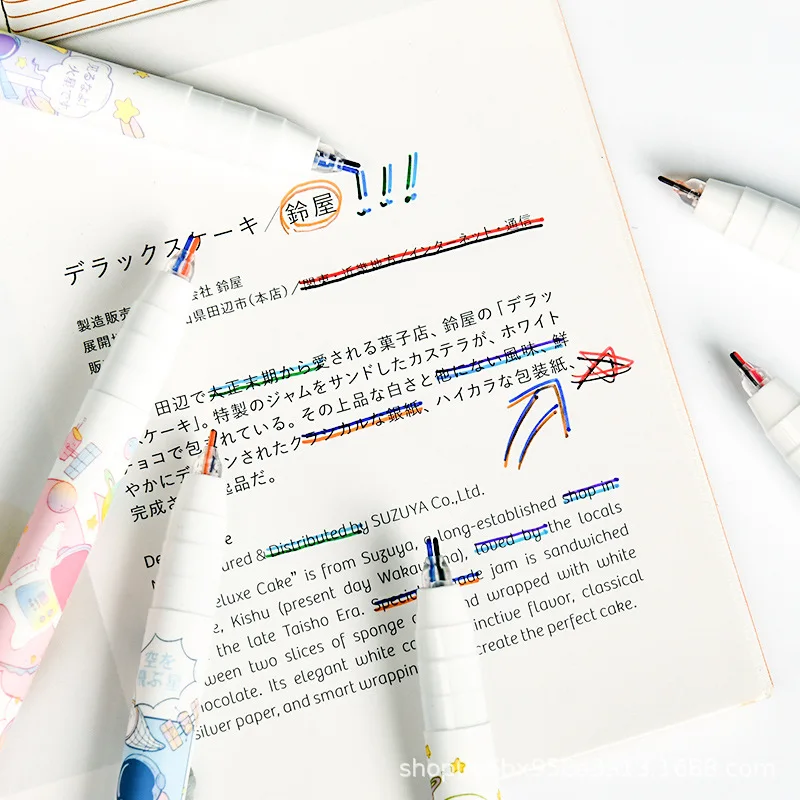 デラックスケーキ/鈴屋 !!!
製造販売
会社 鈴屋
県田辺市(本店)/関東・近畿地方/インターネット・通信
展開
販
田辺で大正末期から愛される菓子店、鈴屋の「デラッ
ケーキ」。特製のジャムをサンドしたカステラが、ホワイト
チョコで包まれている。その上品な白さと他にない風味、鮮
やかにデザインされたクラシカルな銀紙、ハイカラな包装紙、
完成 逸品だ。
ured & Distributed by SUZUYA Co.,Ltd.
eluxe Cake" is from Suzuya, a long-established shop in
e, Kishu (present day Wakayama), loved by the locals
the late Taisho Era. Special made jam is sandwiched
ween two slices of sponge and wrapped with white
hocolate. Its elegant white distinctive flavor, classical
silver paper, and smart wrapping create the perfect cake.
空を